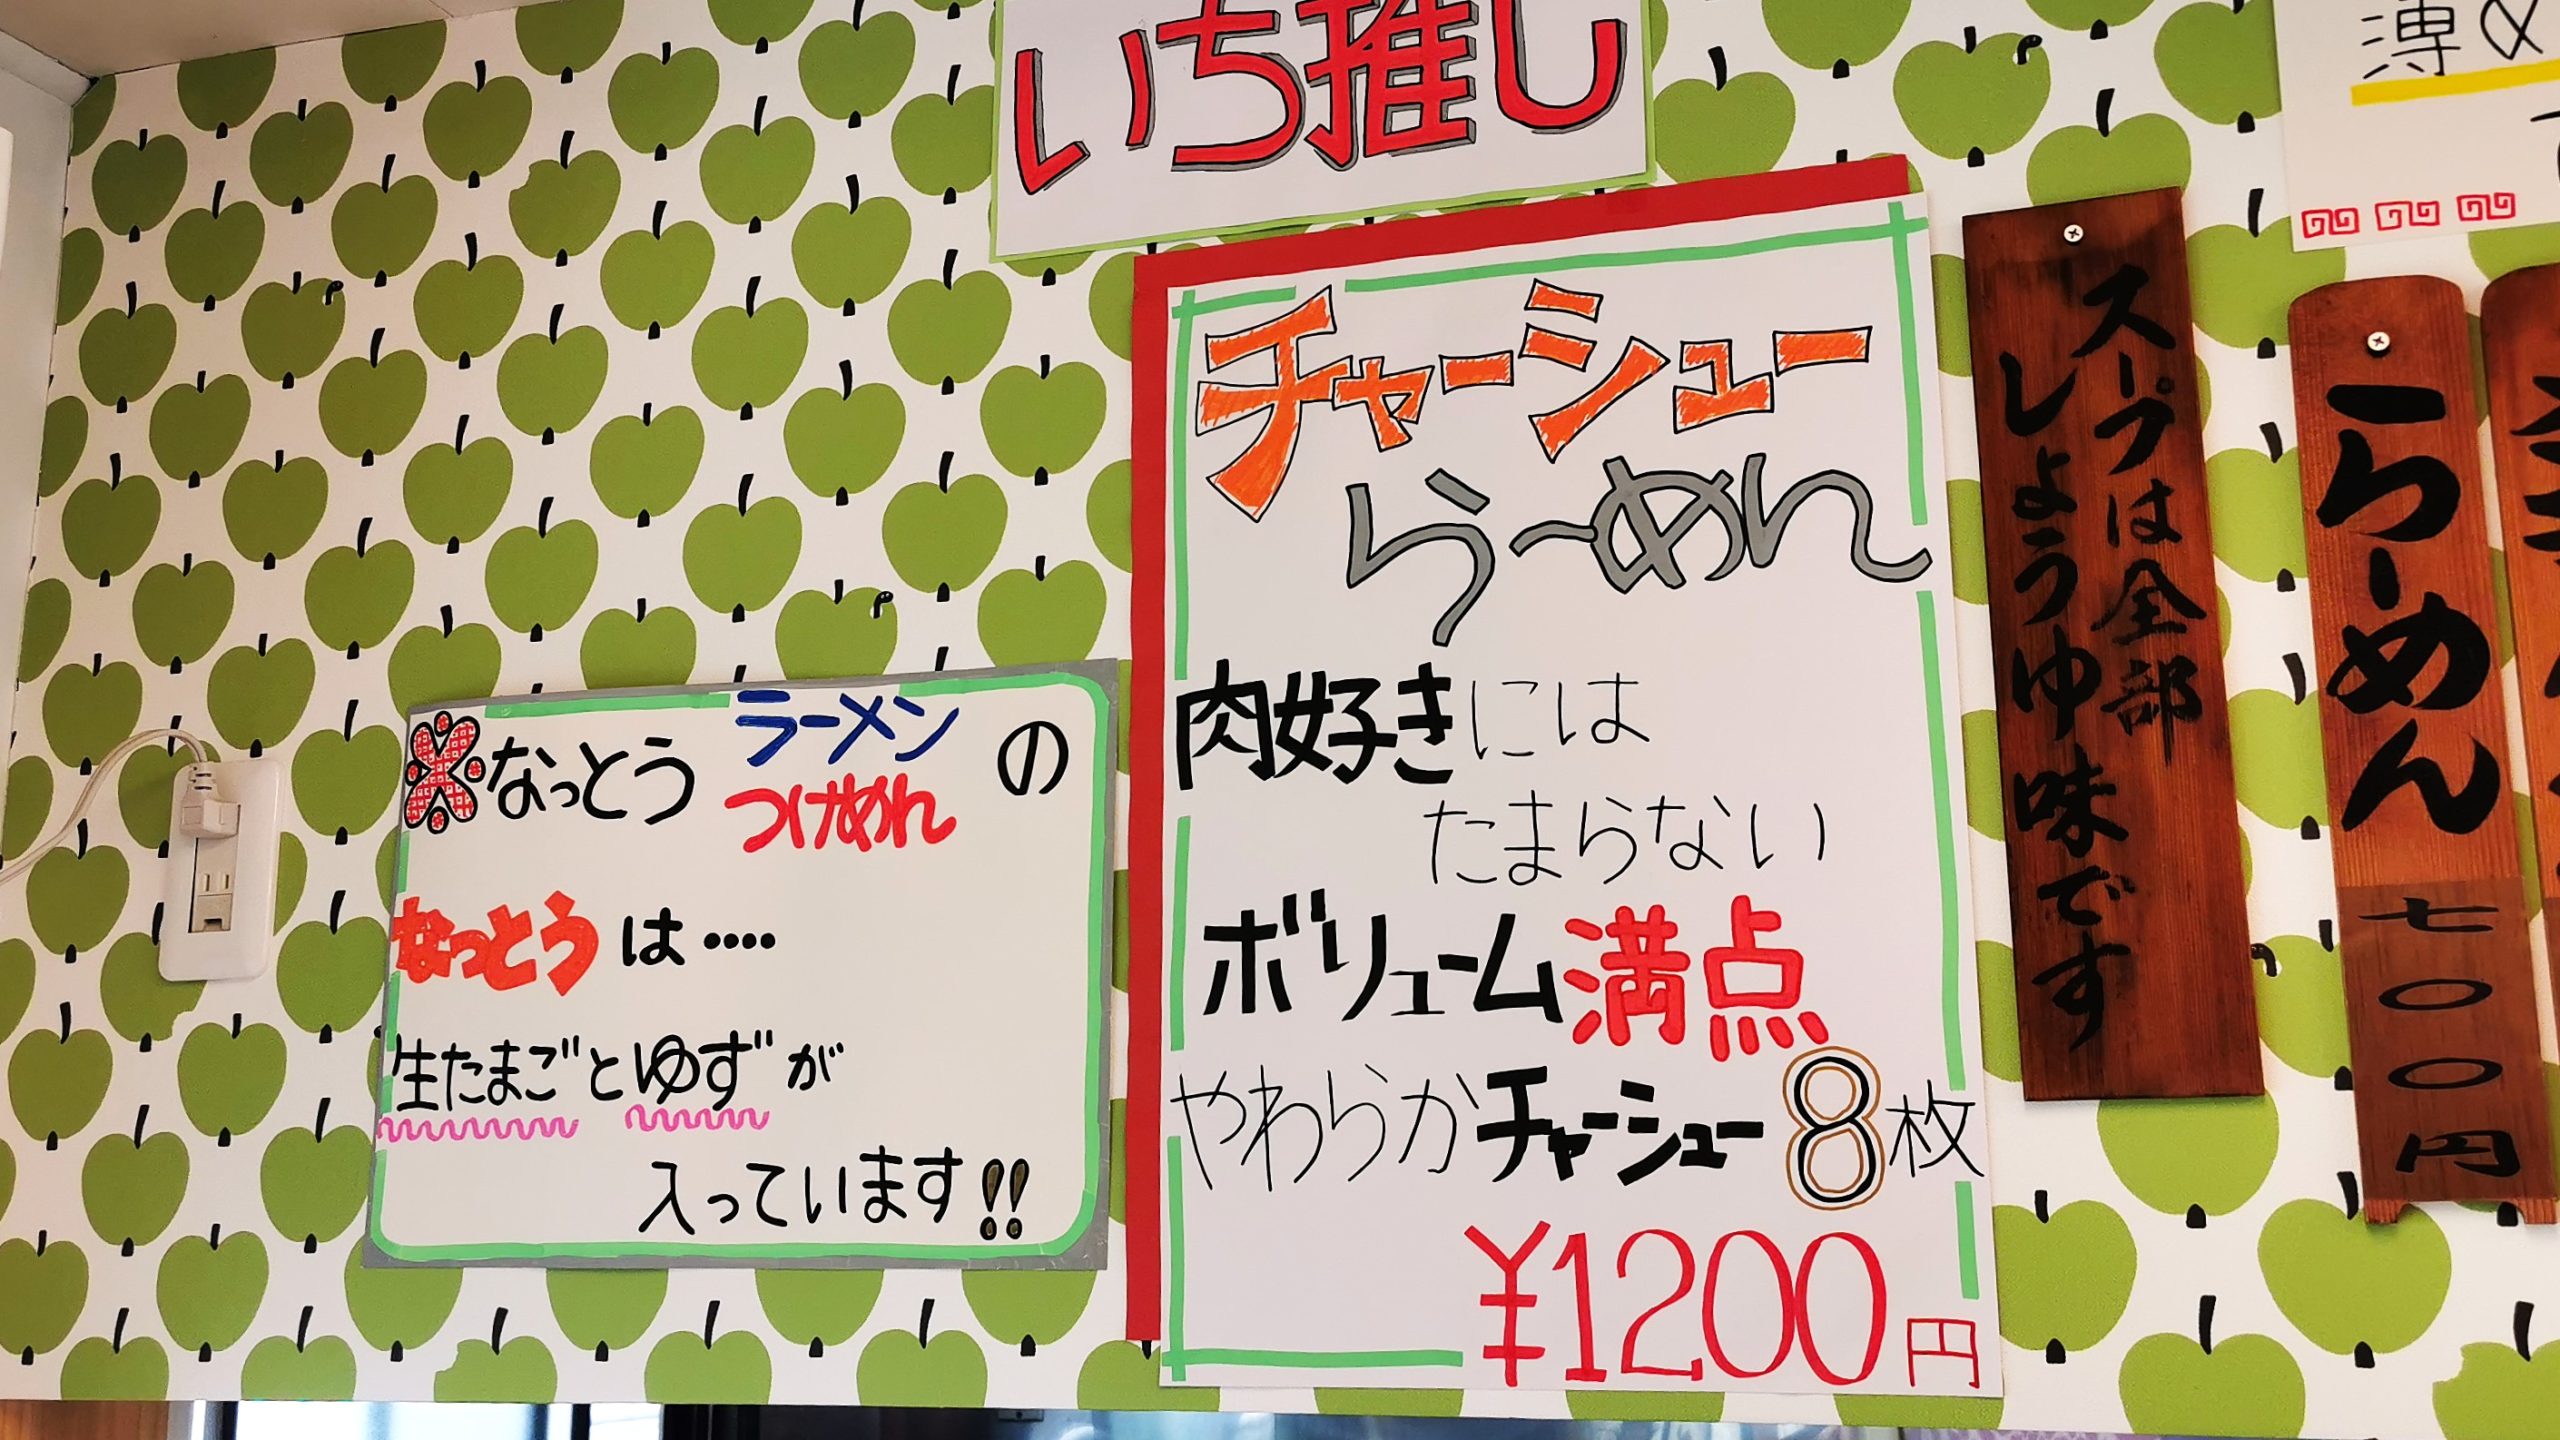 いち推し
チャーシュー
らーめん
肉好きには
たまらない
ボリューム満点
やわらかチャーシュー8枚
¥1200円
※なっとう ラーメン の
つけめん
なっとうは‥‥
生たまごとゆずが
入っています!!
スープは全部
しょうゆ味です
らーめん
七〇〇円
薄め